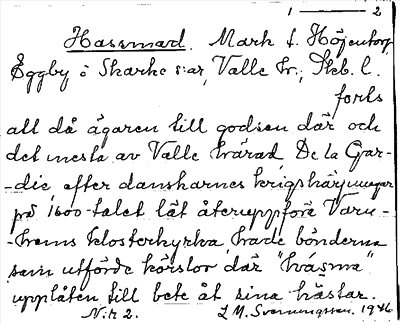 1 — 2
Hassmad. Mark f. Höjentorp
Eggby o Skarke s:ar, Valle hr., Skb. l.
forts
att då ägaren till godsen där och
det mesta av Valle härad, De la Gar-
-die efter danskarnes krigshärjningar
på 1600-talet lät återuppföra Varn-
-hems klosterkyrka, hade bönderna
som utförde körslor där "hasma"
upplåten till bete åt sina hästar.
N:r 2. L M. Svenungsson. 1946